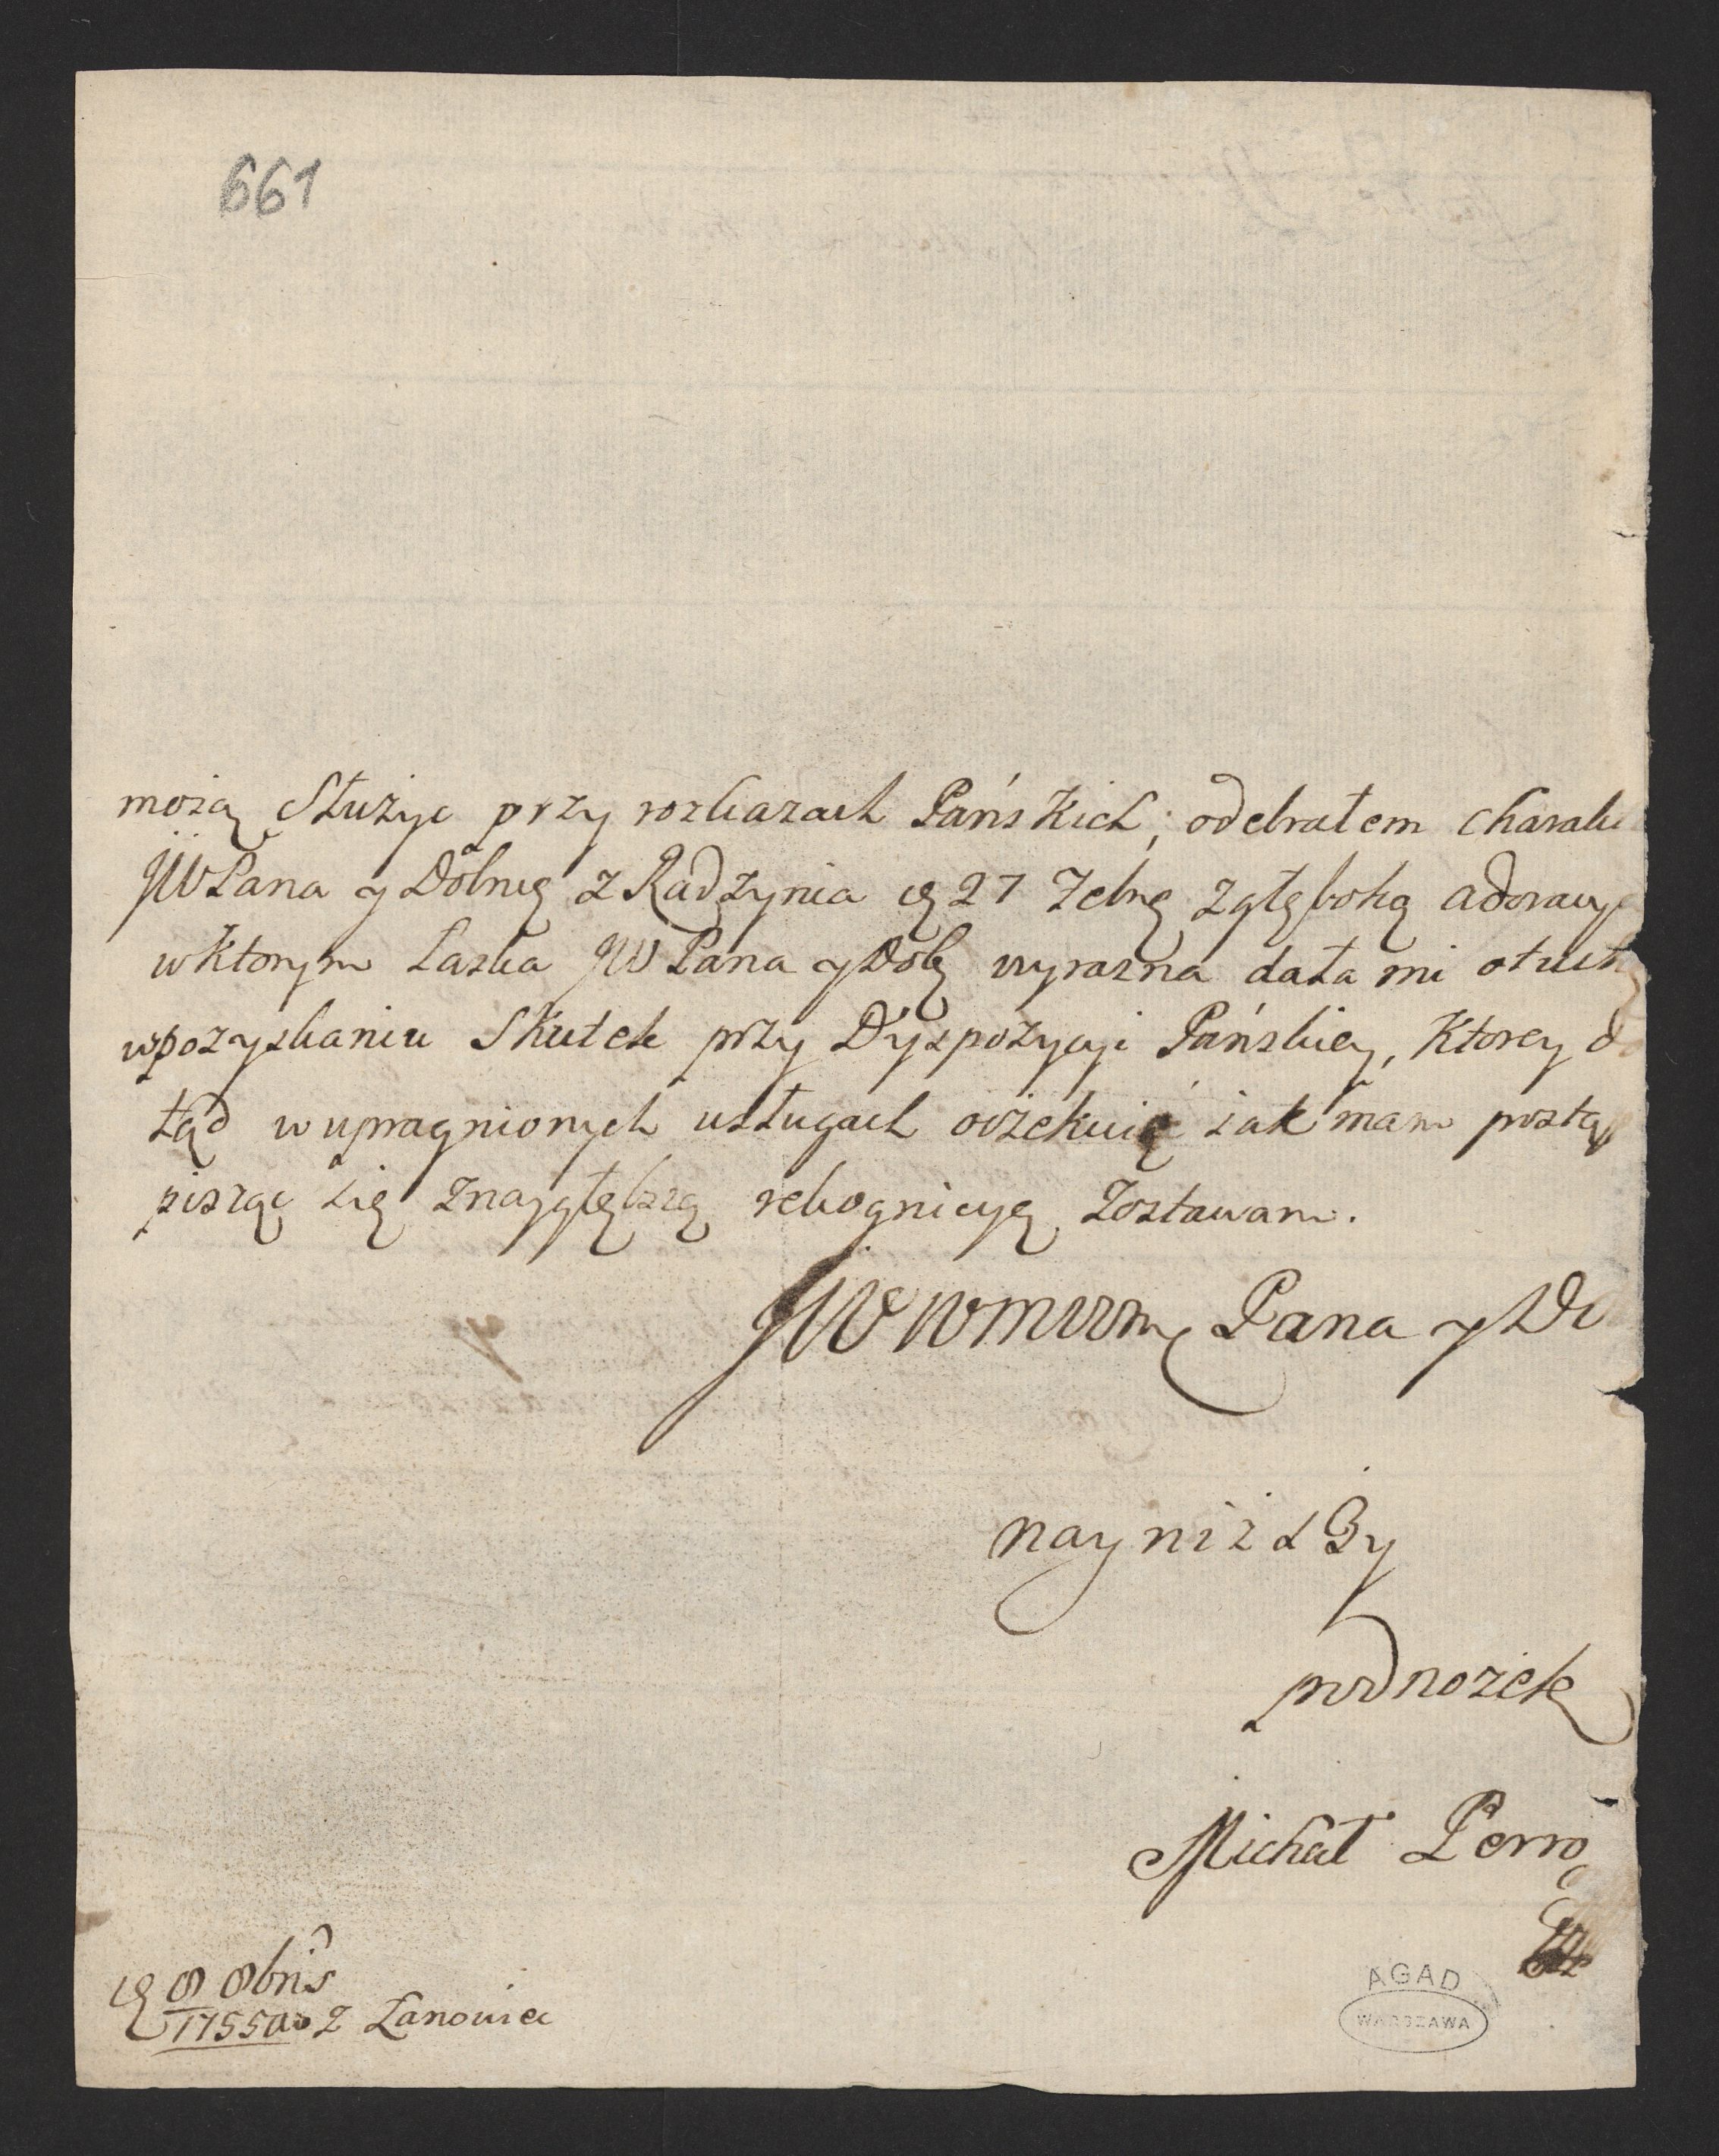 661
mozą Służyc przy rozkazach Pańskich; odebrałem charak
JWPana y Dobrę z Radzynia 27 7brę zgłęboką adoracy
wktorym Łaska JWPana y Dobę wyrazna dała mi otuchę
wpozyskaniu Skutek przy Dyspozycyi Pańskiey, Ktorey d
tąd w upragnionych usługach oczekuię iak mam postą
pisząc się znaygłębszą rekognicyą Zostawam.
Pana y Do
nayniższy
podnożek
Michał Perro
8 8bris
1755 ao z Łanowiec
AGAD
WARSZAWA